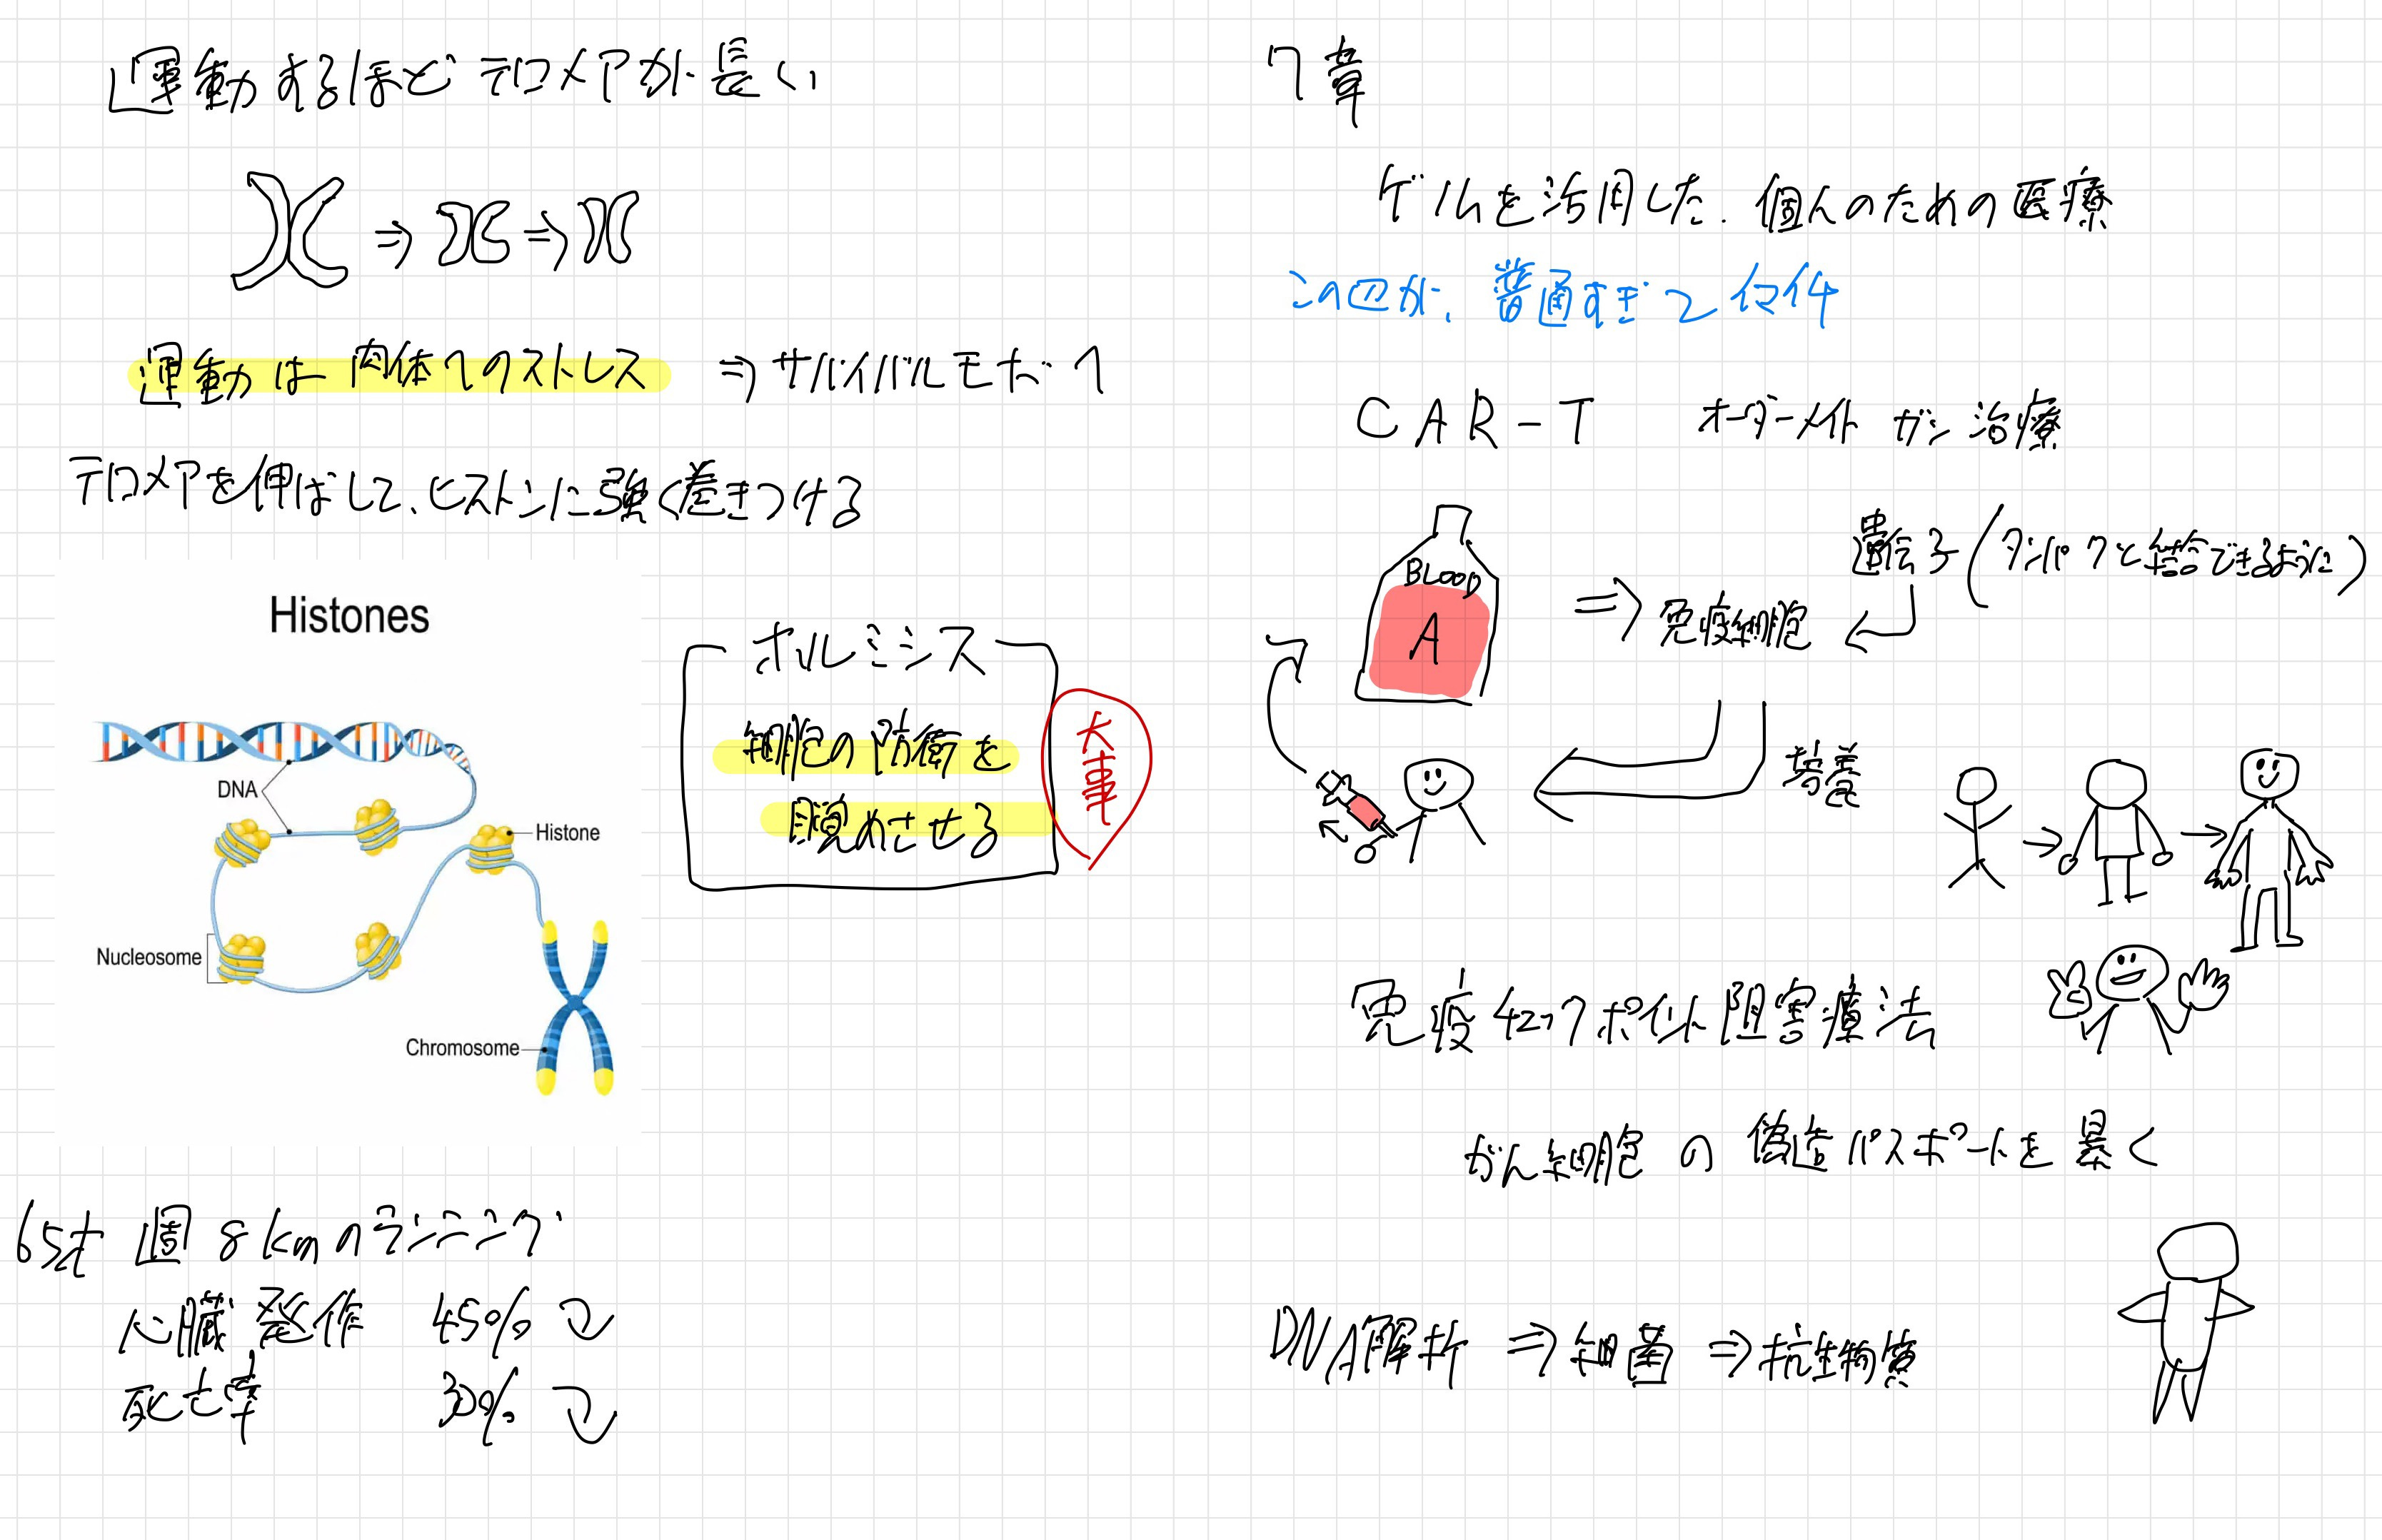 運動するほどテロメアが長い
運動は肉体へのストレス ⇒ サバイバルモードへ
テロメアを伸ばして、ヒストンに強く巻きつける
Histones
DNA
Histone
Nucleosome
Chromosome
ホルミシス
細胞の防衛を
目覚めさせる
大事
65才 週8kmのランニング
心臓発作 45%
死亡率 30%
7章
ゲノムを活用した、個人のための医療
この辺が、普通すぎて
CAR-T オーダーメイト ガン治療
BLOOD
A
⇒ 免疫細胞
遺伝子(タンパクと結合できるように)
培養
免疫チェックポイント阻害療法
がん細胞の偽造パスポートを暴く
DNA解析 ⇒ 細菌 ⇒ 抗生物質